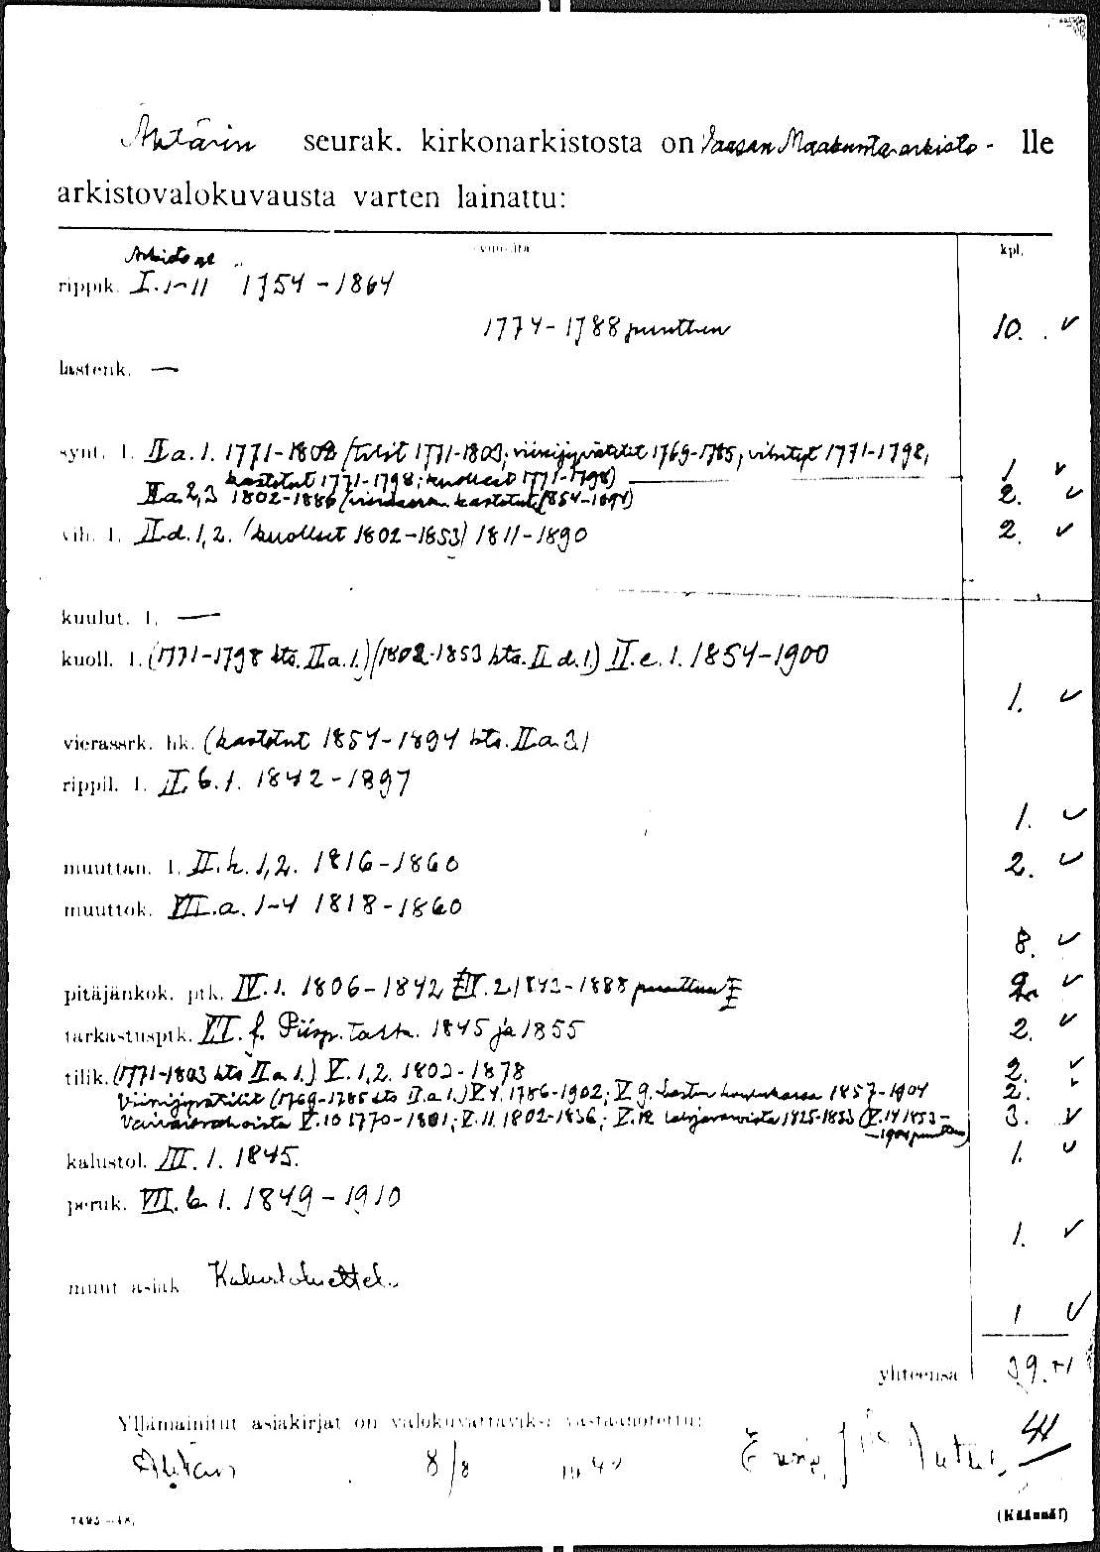 Ähtärin seurak. kirkonarkistosta on Vaasan Maakunta-arkisto - lle
arkistovalokuvausta varten lainattu:
vuosilta kpl.
rippik. I. 1-11 1754-1864
1774-1788 puuttuu 10. ✓
lastenk. —
synt. l. II a. 1. 1771-1802 (tilit 1771-1803; viinijyvätilit 1769-1785; vihityt 1771-1798,
kastetut 1771-1798; kuolleet 1771-1798) — 1 ✓
II a 2,3 1802-1886 (vierassrk. kastetut 1854-1894) 2. ✓
vih. l. II d. 1,2. (kuolleet 1802-1853) 1811-1890 2. ✓
kuulut. l. —
kuoll. l. (1771-1798 kts. II a. 1.) (1802-1853 kts. II d. 1.) II. e. 1. 1854-1900
1. ✓
vierassrk. hk. (kastetut 1854-1894 kts. II a. 3)
rippil. l. II. b. 1. 1842-1897
1. ✓
muuttan. l. II. h. 1,2. 1816-1860 2. ✓
muuttok. VII. a. 1-4 1818-1860
8. ✓
pitäjänkok. ptk. IV. 1. 1806-1842 IV. 2. 1843-1888 puuttuu 2. ✓
tarkastusptk. f. Piisp. tark. 1845 ja 1855 2. ✓
tilik. (1771-1803 kts II a. 1.) V. 1,2. 1802-1878 2. ✓
Viinijyvätilit (1769-1785 kts II. a. 1.) V. 4. 1786-1902; V. 9. Lasten koulukassa 1857-1904 2. ✓
Vaivaisrahoista V. 10 1770-1801; V. 11. 1802-1836; V. 12 1825-1853 (V. 14 1853- 3. ✓
-1904 puuttuu)
kalustol. III. 1. 1845. 1. ✓
peruk. VII. b 1. 1849-1910
1. ✓
muut asiak. Kalustoluettel.
1 ✓
yhteensä 39.
Yllämainitut asiakirjat on valokuvattaviksi vastaanotettu: 41
Ähtäri 8/8 19
7495 - 48.
(Käännä!)